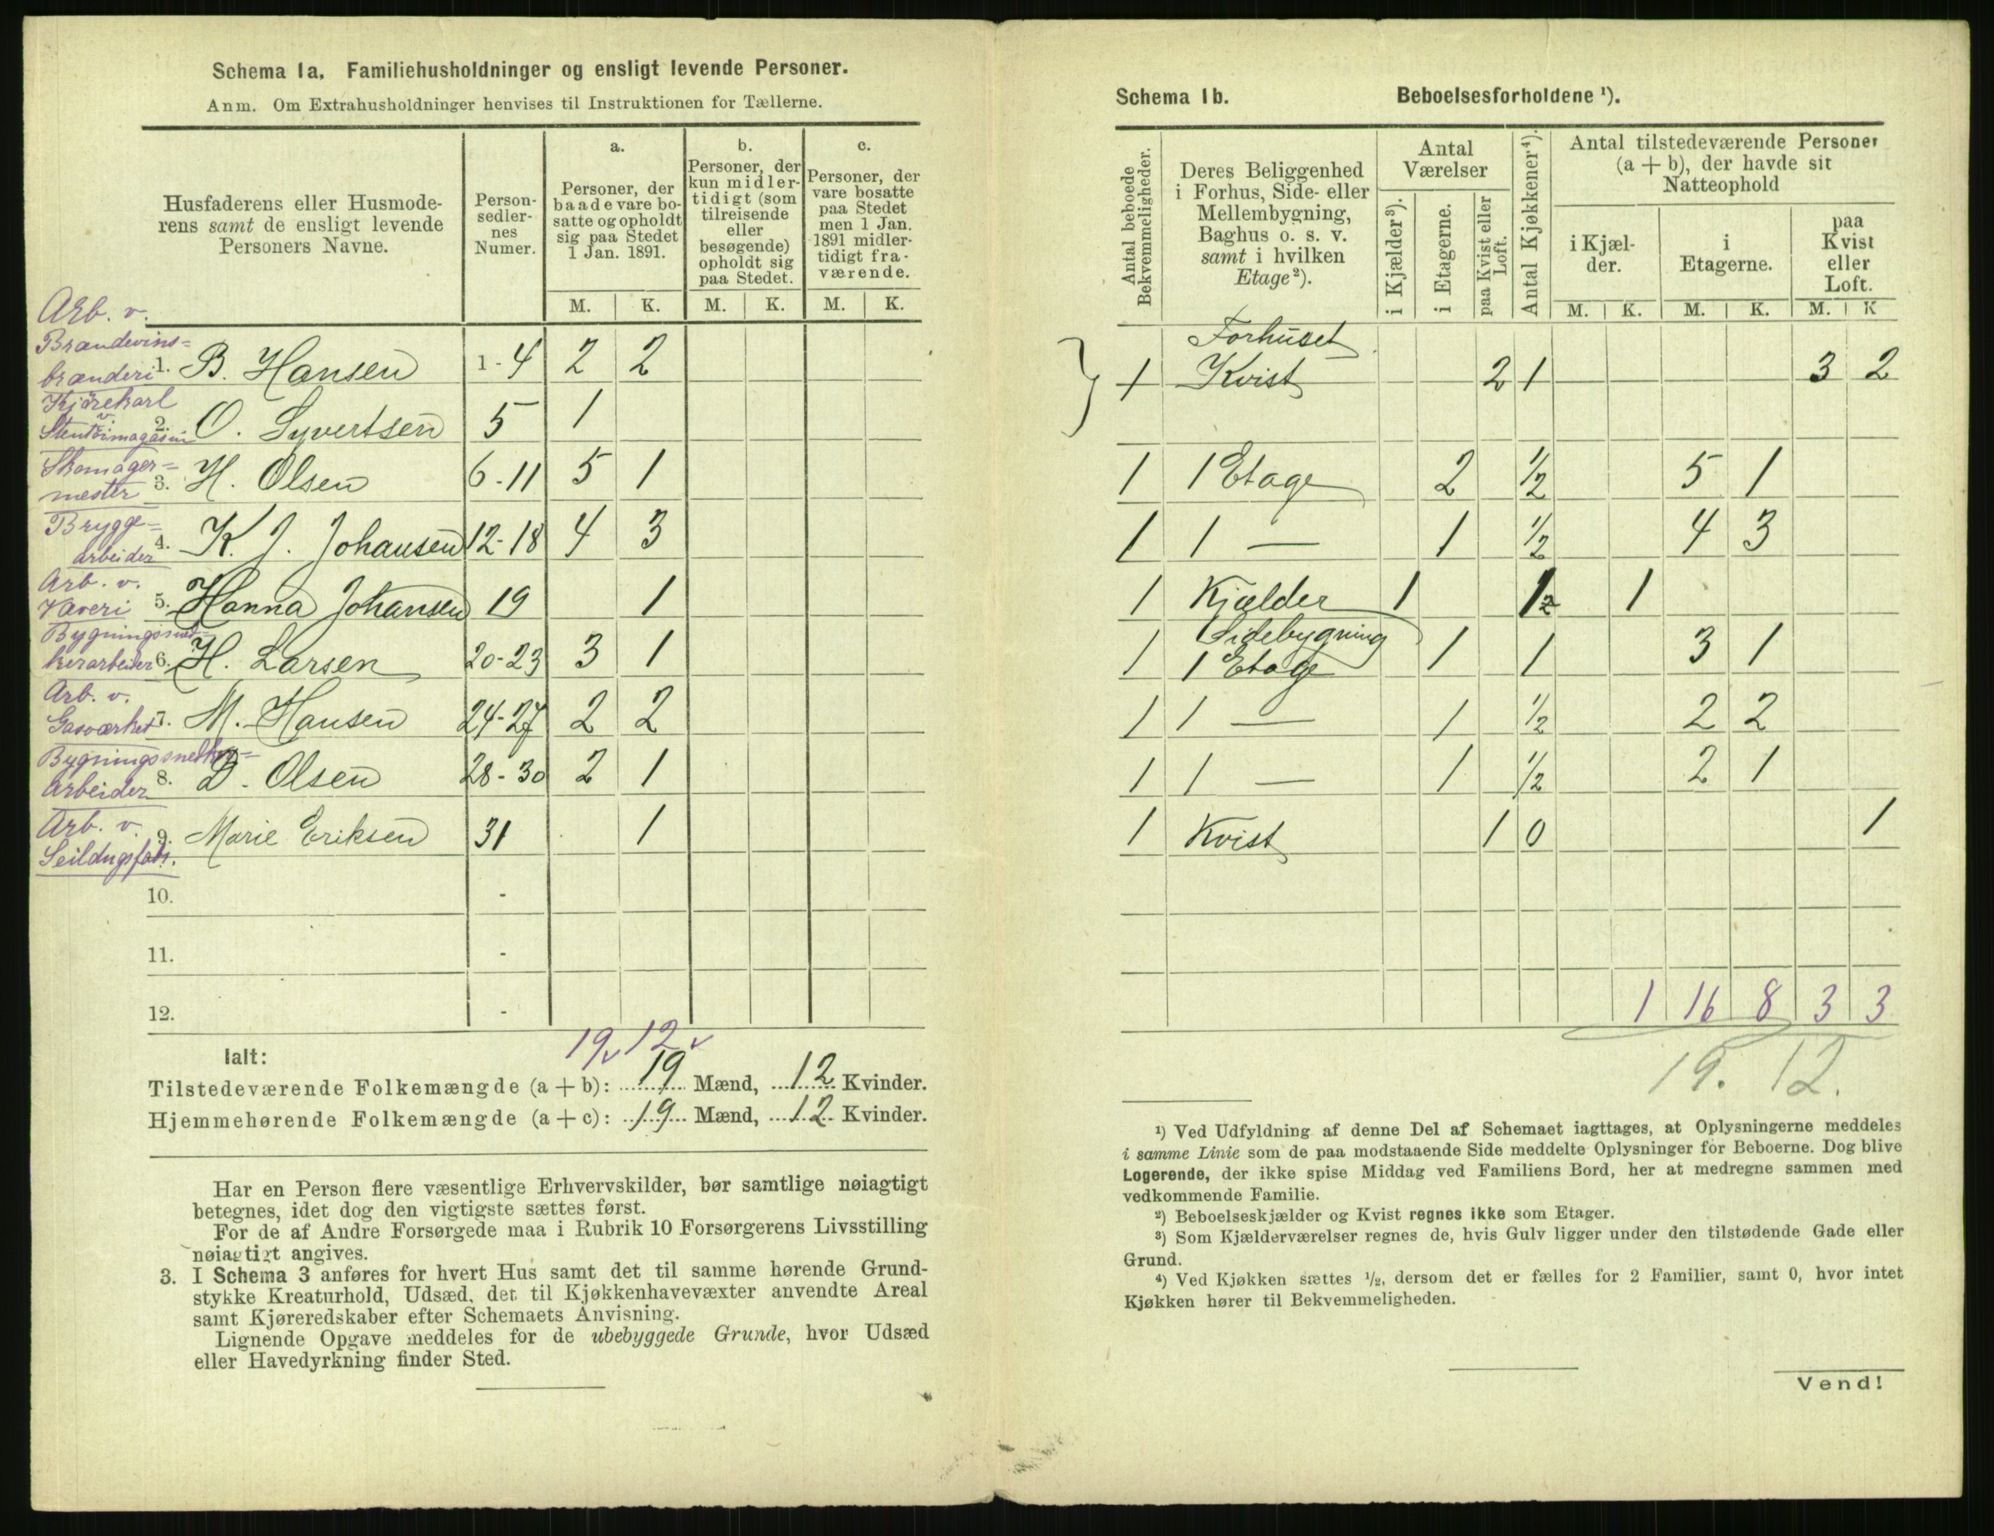 Schema 1a. Familiehusholdninger og ensligt levende Personer.
Anm. Om Extrahusholdninger henvises til Instruktionen for Tællerne.
Husfaderens eller Husmode-
rens samt de ensligt levende
Personers Navne.
Person-
sedler-
nes
Numer.
a.
Personer, der
baade vare bo-
satte og opholdt
sig paa Stedet
1 Jan. 1891.
b.
Personer, der
kun midler-
tidigt (som
tilreisende
eller
besøgende)
opholdt sig
paa Stedet.
c.
Personer, der
vare bosatte
paa Stedet
men 1 Jan.
1891 midler-
tidigt fra-
værende.
M. K. M. K. M. K.
Arb. v.
Brændevins-
brænderi 1. B. Hansen 1-4 2 2
Kjørekarl
v
Stentöimagasin 2. O. Syvertsen 5 1
Skomager-
mester 3. H. Olsen 6-11 5 1
Brygge-
arbeider 4. K. J. Johansen 12-18 4 3
Arb. v.
Væveri 5. Hanna Johansen 19 1
Bygningssned-
kerarbeider 6. H. Larsen 20-23 3 1
Arb. v.
Gasværket 7. M. Hansen 24-27 2 2
Bygningssnedker-
arbeider 8. D. Olsen 28-30 2 1
Arb. v. 9. Marie Eriksen 31 1
Seildugsfabr.
10. -
11. -
12. -
19v 12v
Ialt:
Tilstedeværende Folkemængde (a + b): 19 Mænd, 12 Kvinder.
Hjemmehørende Folkemængde (a + c): 19 Mænd, 12 Kvinder.
Har en Person flere væsentlige Erhvervskilder, bør samtlige nøiagtigt
betegnes, idet dog den vigtigste sættes først.
For de af Andre Forsørgede maa i Rubrik 10 Forsørgerens Livsstilling
nøiagtigt angives.
3. I Schema 3 anføres for hvert Hus samt det til samme hørende Grund-
stykke Kreaturhold, Udsæd, det til Kjøkkenhavevæxter anvendte Areal
samt Kjøreredskaber efter Schemaets Anvisning.
Lignende Opgave meddeles for de ubebyggede Grunde, hvor Udsæd
eller Havedyrkning finder Sted.
Schema 1b. Beboelsesforholdene ¹).
Antal beboede
Bekvemmeligheder.
Deres Beliggenhed
i Forhus, Side- eller
Mellembygning,
Baghus o. s. v.
samt i hvilken
Etage²).
Antal
Værelser
i Kjælder³).
i Etagerne.
paa Kvist eller
Loft.
Antal Kjøkkener⁴).
Antal tilstedeværende Personer
(a + b), der havde sit
Natteophold
i Kjæl-
der.
i
Etagerne.
paa
Kvist
eller
Loft.
M. K. M. K. M. K
Forhuset
1 Kvist 2 1 3 2
1 1 Etage 2 1/2 5 1
1 1 — 1 1/2 4 3
1 Kjælder 1 1/2 1
Sidebygning
1 1 Etage 1 1 3 1
1 1 — 1 1/2 2 2
1 1 — 1 1/2 2 1
1 Kvist 1 0 1
1 16 8 3 3
19. 12.
¹) Ved Udfyldning af denne Del af Schemaet iagttages, at Oplysningerne meddeles
i samme Linie som de paa modstaaende Side meddelte Oplysninger for Beboerne. Dog blive
Logerende, der ikke spise Middag ved Familiens Bord, her at medregne sammen med
vedkommende Familie.
²) Beboelseskjælder og Kvist regnes ikke som Etager.
³) Som Kjælderværelser regnes de, hvis Gulv ligger under den tilstødende Gade eller
Grund.
⁴) Ved Kjøkken sættes ½, dersom det er fælles for 2 Familier, samt 0, hvor intet
Kjøkken hører til Bekvemmeligheden.
Vend!